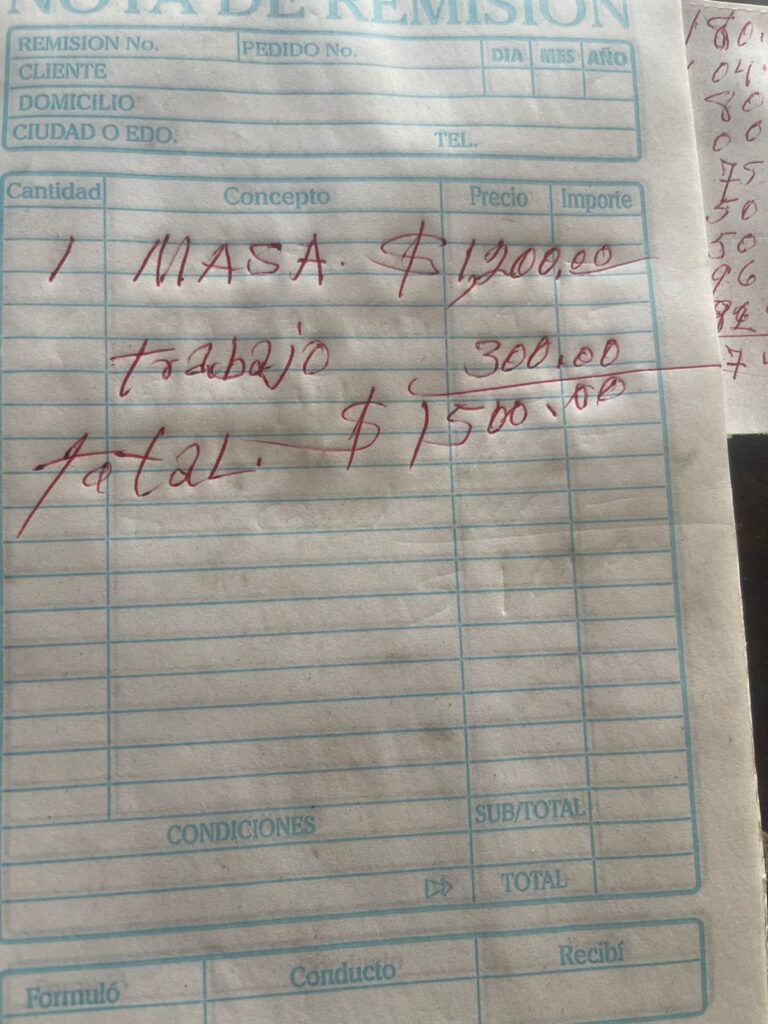 NOTA DE REMISIÓN
REMISION No. PEDIDO No. DIA MES AÑO
CLIENTE
DOMICILIO
CIUDAD O EDO. TEL.
Cantidad Concepto Precio Importe
1 MASA. $ 1,200.00
trabajo 300.00
total. $ 1500.00
CONDICIONES SUB/TOTAL
TOTAL
Formuló Conducto Recibí
180.
04
80
00
75
50
50
96
7